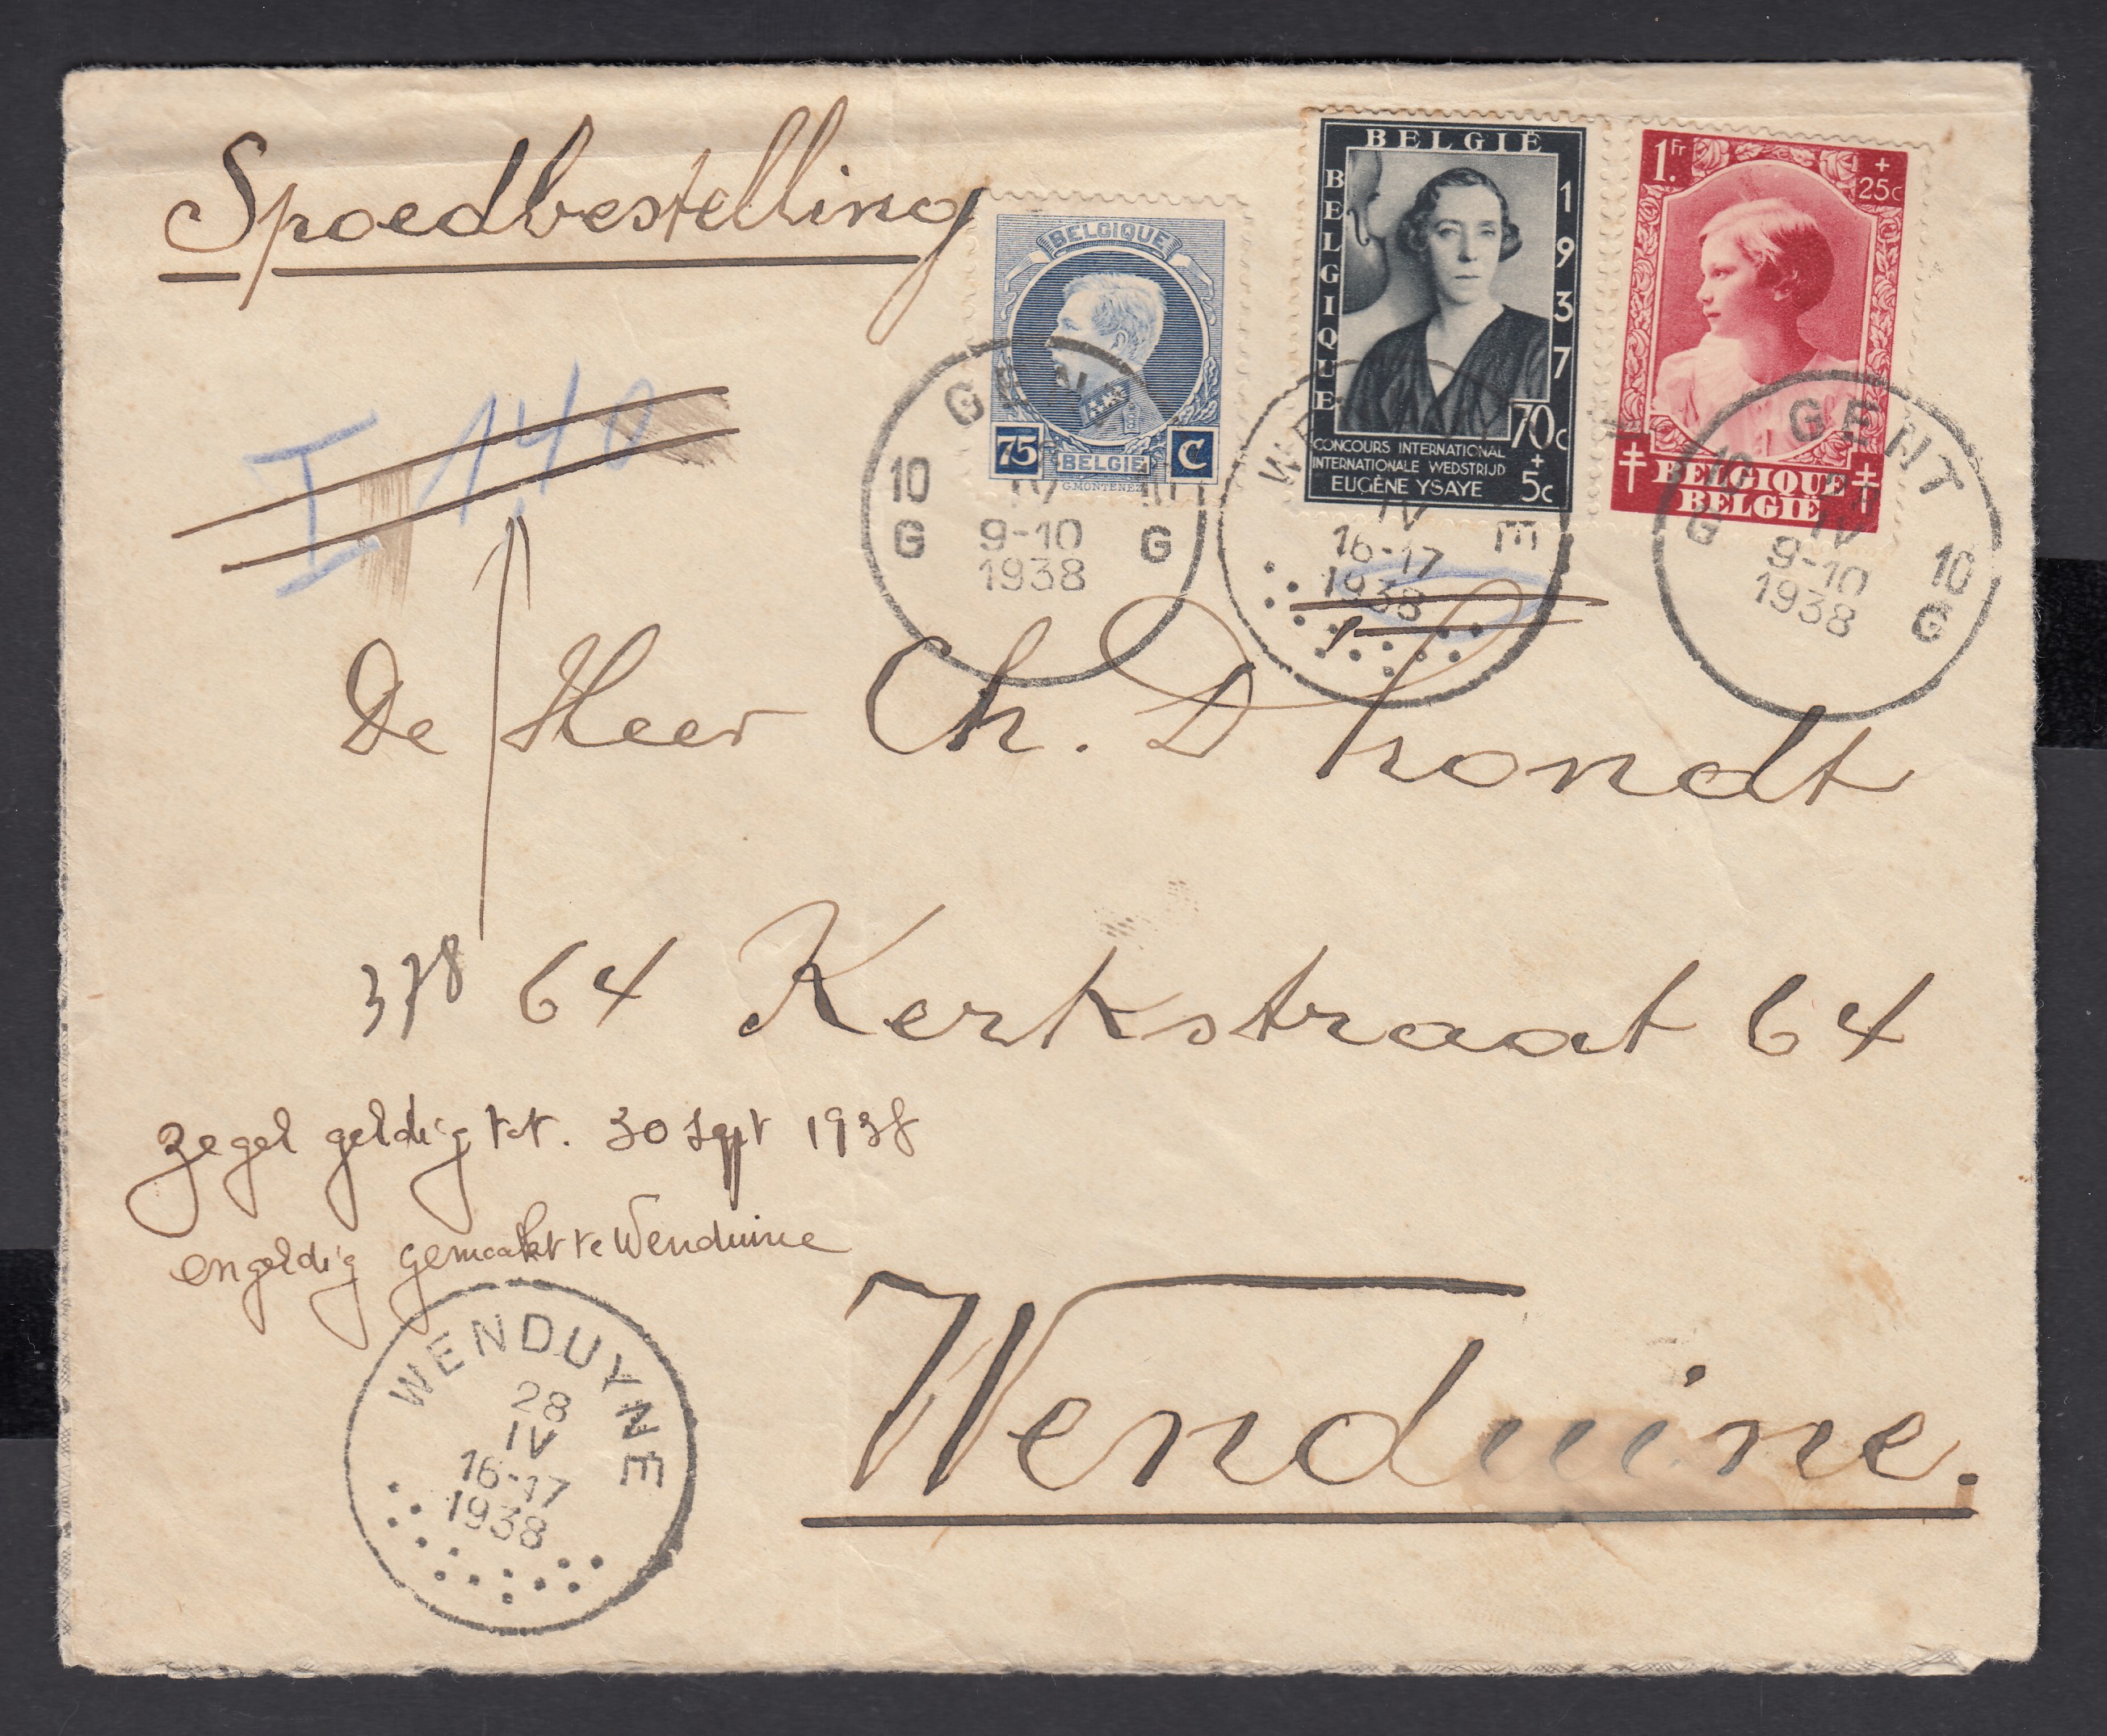 Spoedbestelling
BELGIQUE
75 C
BELGIË
G.MONTENEZ
BELGIË
BELGIQUE
1937
70c
+
5c
CONCOURS INTERNATIONAL
INTERNATIONALE WEDSTRIJD
EUGÈNE YSAYE
1.Fr
+
25c
BELGIQUE
BELGIË
I 1,40
GENT
10 10
IV
G 9-10 G
1938
WE E
IV
16-17
1938
GENT
10 10
IV
G 9-10 G
1938
De Heer Ch. Dhondt
378 64 Kerkstraat 64
zegel geldig tot. 30 sept 1938
ongeldig gemaakt te Wenduine
Wenduine.
WENDUYNE
28
IV
16-17
1938